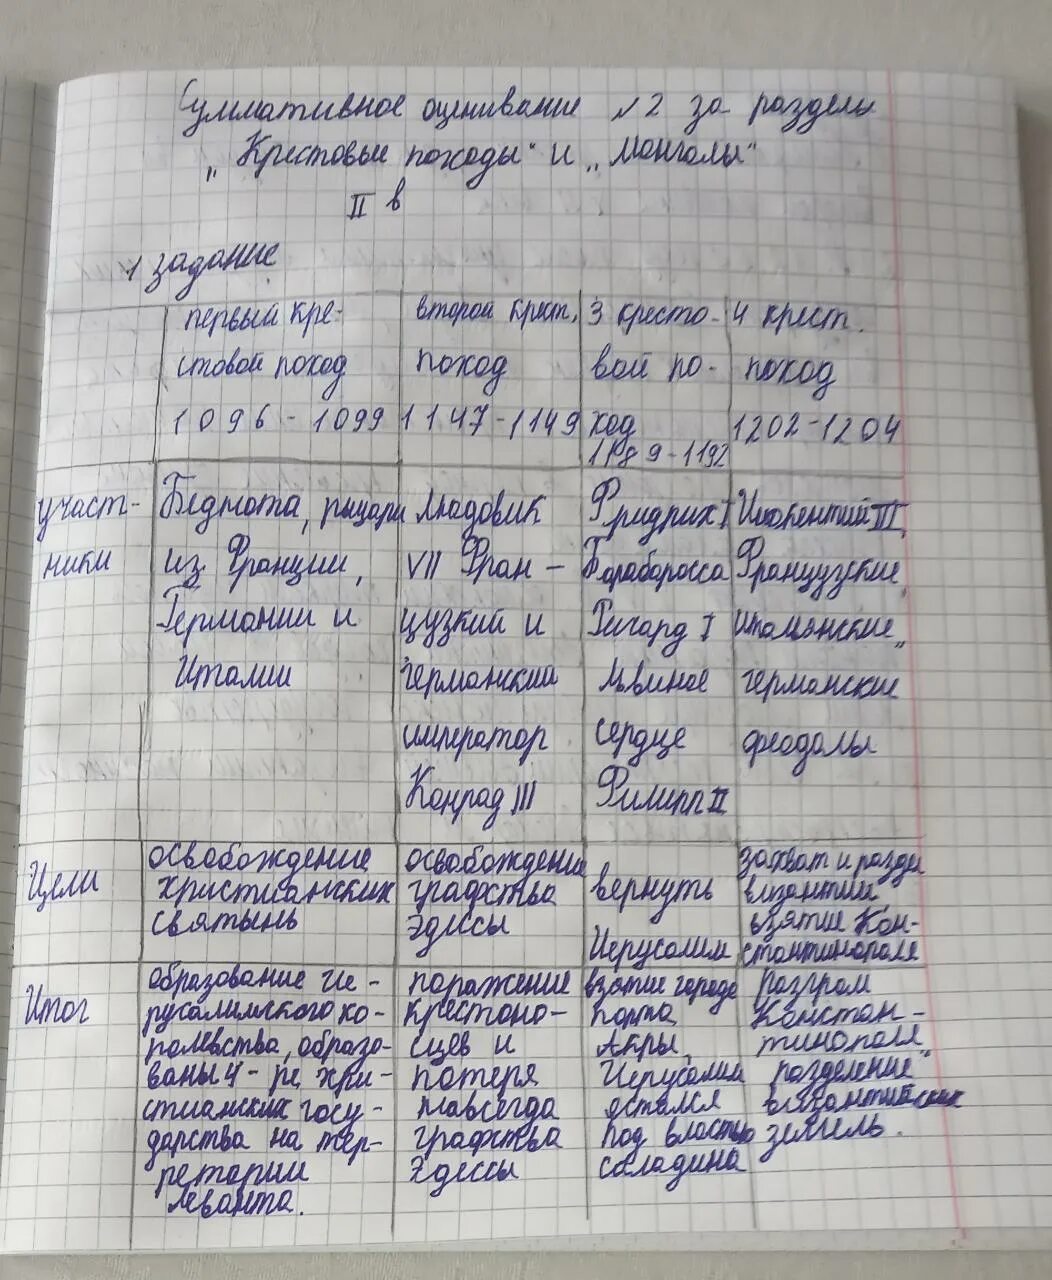 Суммативное оценивание №2 за разделы
„Крестовые походы" и „Монголы"
II в
1 задание
первый кре-
стовой поход
1096-1099
второй крест.
поход
1147-1149
3 кресто-
вой по-
ход
1189-1192
4 крест.
поход
1202-1204
участ-
ники
Беднота, рыцари
из Франции,
Германии и
Италии
Людовик
VII Фран-
цузкий и
германский
император
Конрад III
Фридрих I
Барабаросса
Ричард I
Львиное
сердце
Филипп II
Инокентий III
Французские,
итальянские,
германские
феодалы
Цели
освобождение
христианских
святынь
освобождение
графства
Эдессы
вернуть
Иерусалим
захват и разде
византии
взятие Кон-
стантинополе
Итог
образование Ие-
русалимского ко-
ролевства, образо-
ваны 4-ре хри-
стианских госу-
дарства на тер-
ретории
Леванта.
поражение
крестоно-
сцев и
потеря
навсегда
графства
Эдессы
взятие города
порта
Акры,
Иерусалим
остался
под властью
саладина
разгром
Констан-
тинополя,
разделение
византийских
земель.